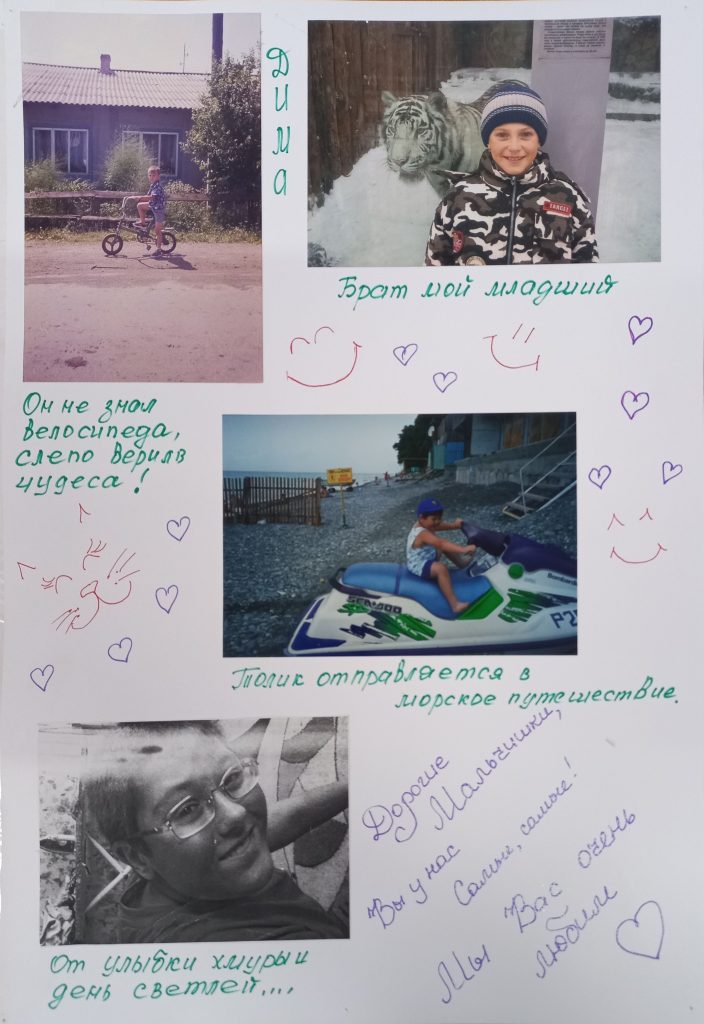 ДИМА
Брат мой младший
TARGET
Он не знал
велосипеда,
слепо верил в
чудеса!
SEA-DOO
Bombardier
P2
Толик отправляется в
морское путешествие.
От улыбки хмурый
день светлей....
Дорогие
Мальчишки,
Вы у нас
Самые, самые!
Мы Вас очень
любим